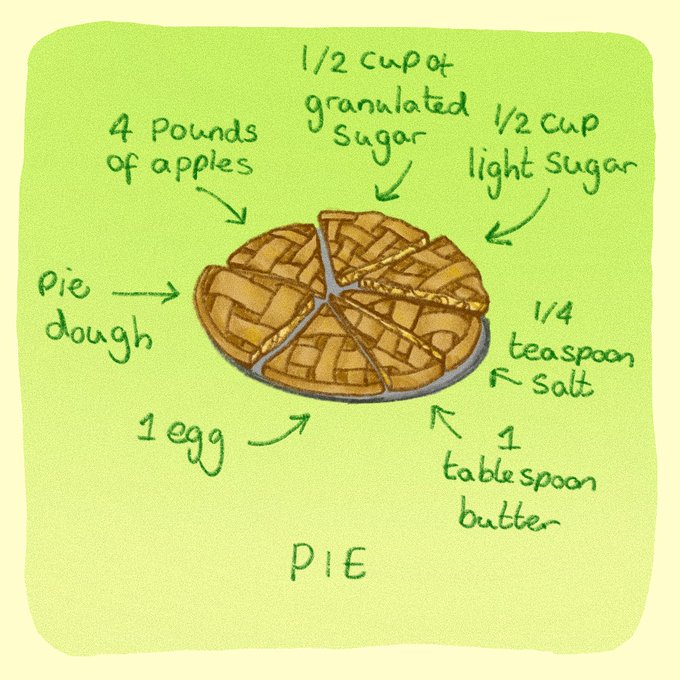 1/2 cup of
granulated
sugar
1/2 cup
light sugar
4 pounds
of apples
pie
dough
1/4
teaspoon
salt
1 egg
1
tablespoon
butter
PIE